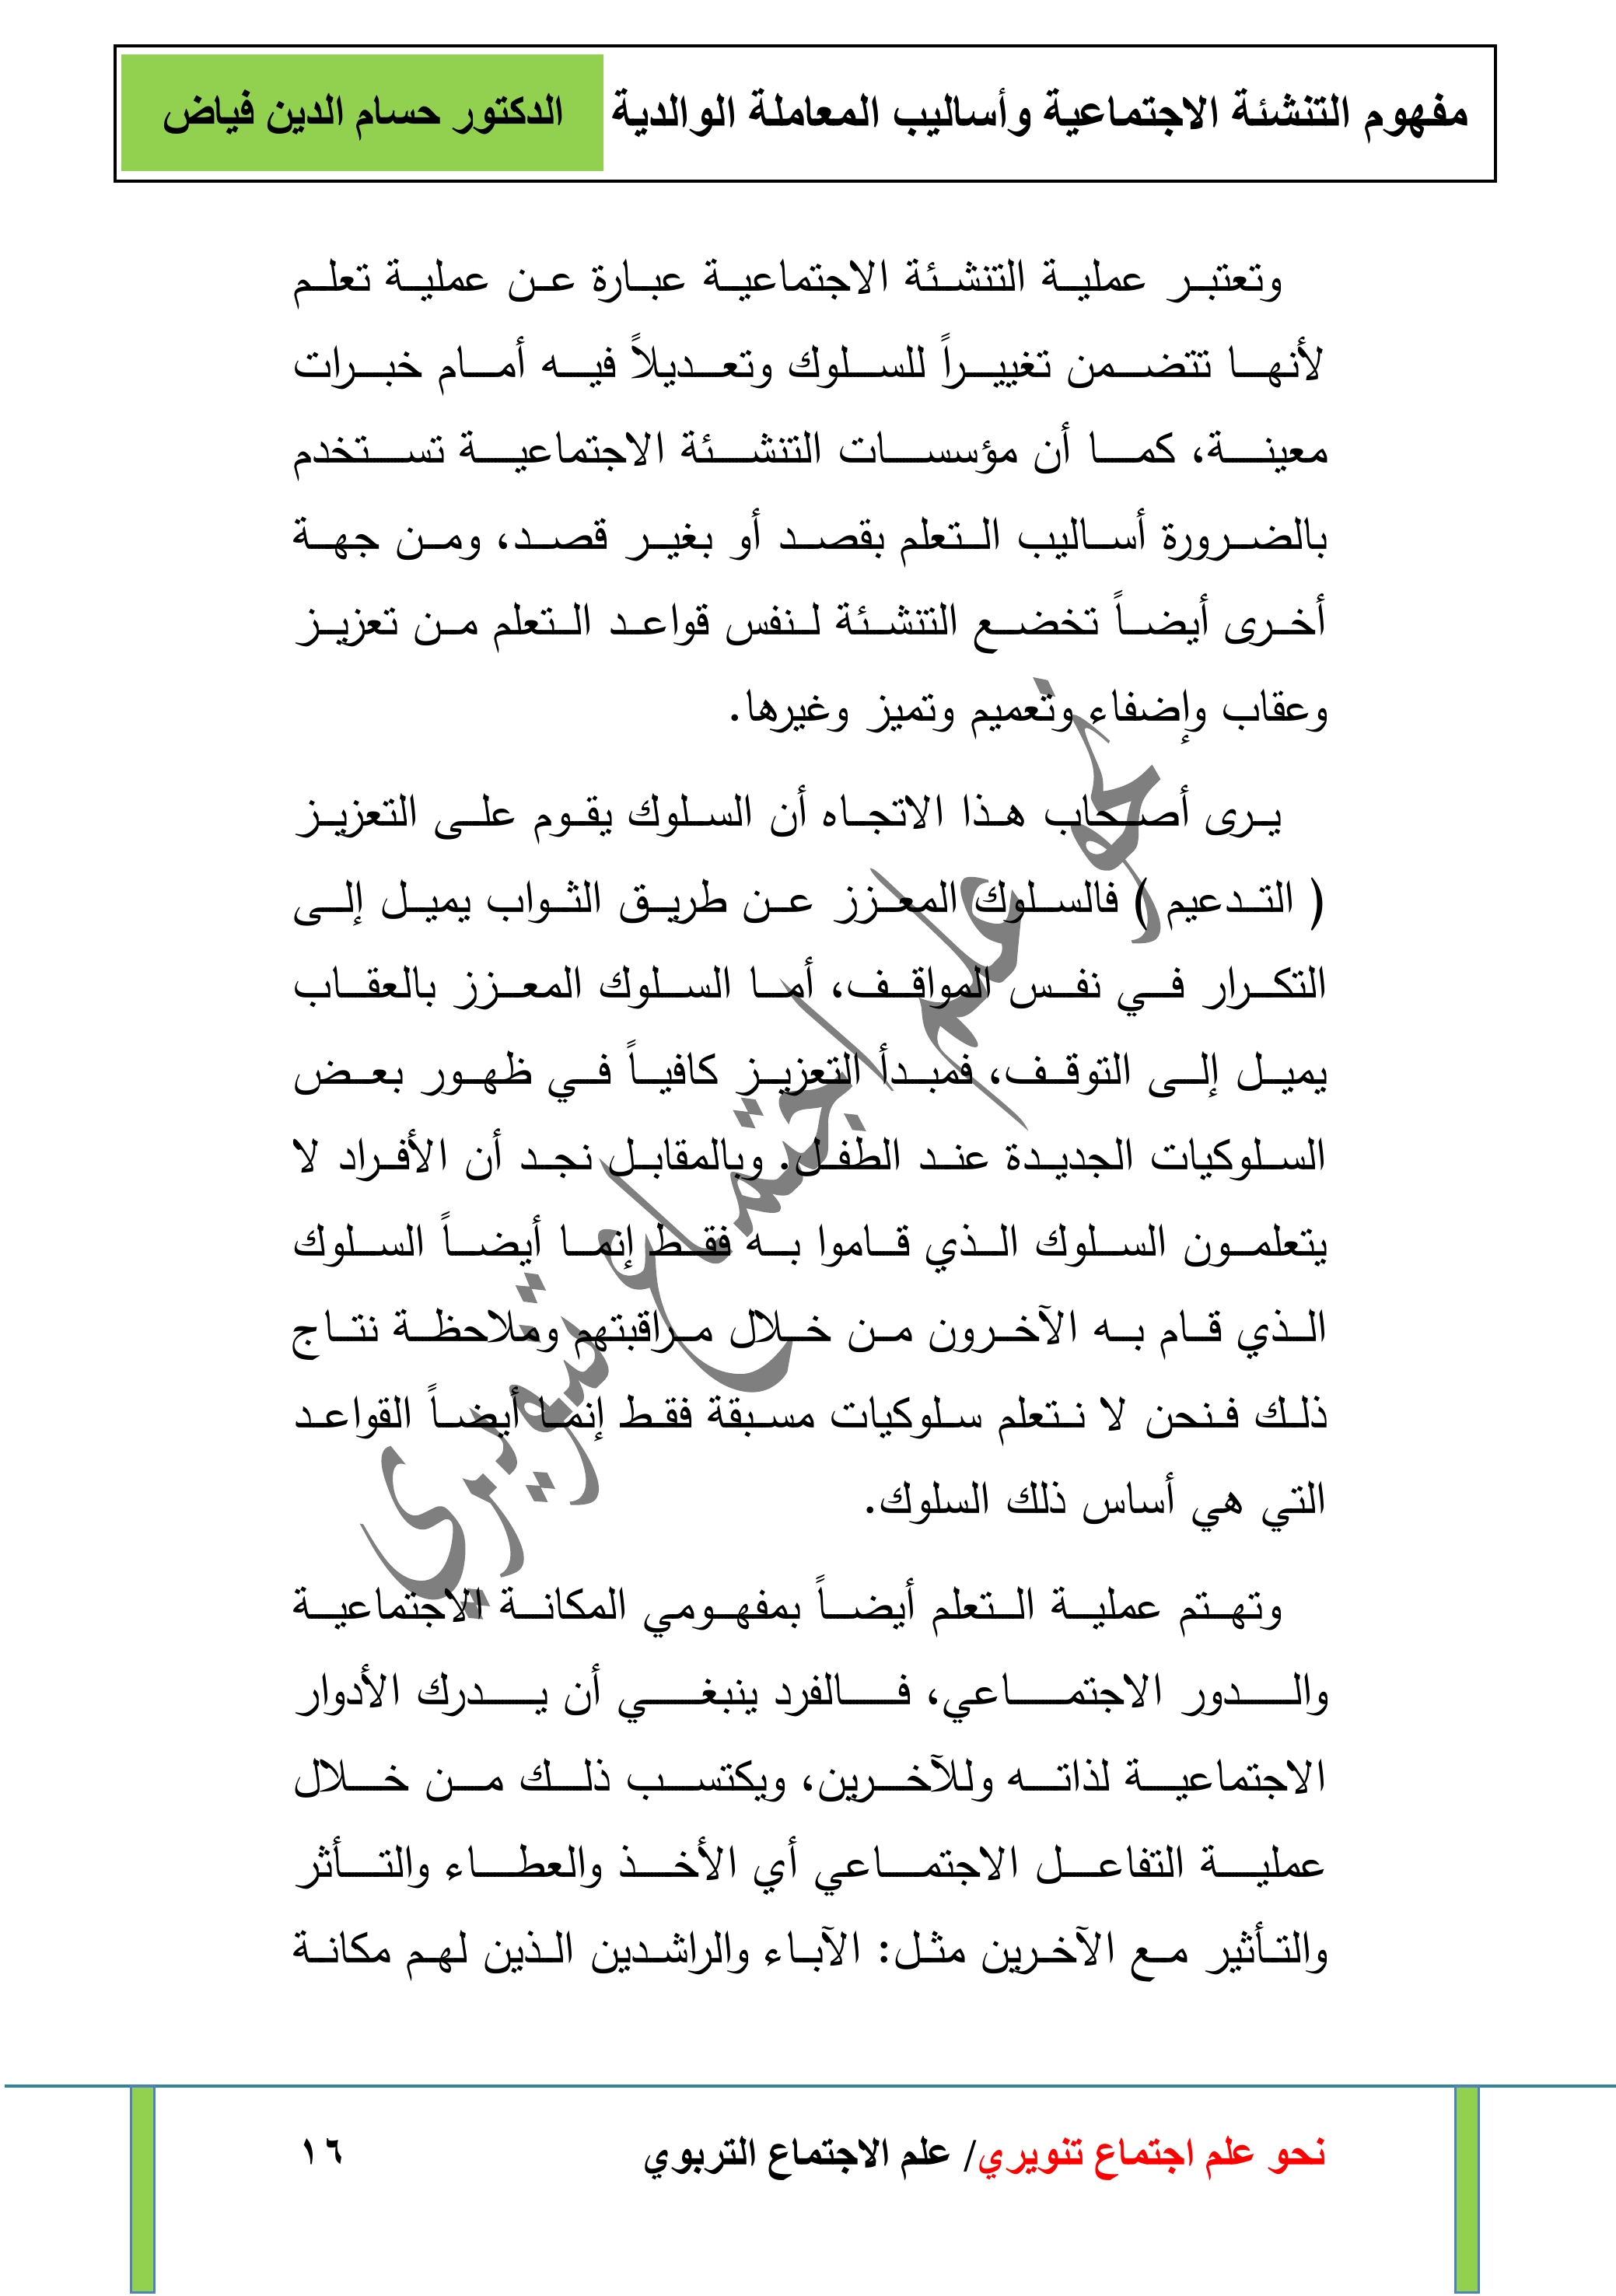 مفهوم التنشئة الاجتماعية وأساليب المعاملة الوالدية الدكتور حسام الدين فياض
وتعتبر عملية التنشئة الاجتماعية عبارة عن عملية تعلم
لأنها تتضمن تغييراً للسلوك وتعديلاً فيه أمام خبرات
معينة، كما أن مؤسسات التنشئة الاجتماعية تستخدم
بالضرورة أساليب التعلم بقصد أو بغير قصد، ومن جهة
أخرى أيضاً تخضع التنشئة لنفس قواعد التعلم من تعزيز
وعقاب وإضفاء وتعميم وتميز وغيرها.
يرى أصحاب هذا الاتجاه أن السلوك يقوم على التعزيز
( التدعيم ) فالسلوك المعزز عن طريق الثواب يميل إلى
التكرار في نفس المواقف، أما السلوك المعزز بالعقاب
يميل إلى التوقف، فمبدأ التعزيز كافياً في ظهور بعض
السلوكيات الجديدة عند الطفل. وبالمقابل نجد أن الأفراد لا
يتعلمون السلوك الذي قاموا به فقط إنما أيضاً السلوك
الذي قام به الآخرون من خلال مراقبتهم وملاحظة نتاج
ذلك فنحن لا نتعلم سلوكيات مسبقة فقط إنما أيضاً القواعد
التي هي أساس ذلك السلوك.
وتهتم عملية التعلم أيضاً بمفهومي المكانة الاجتماعية
والدور الاجتماعي، فالفرد ينبغي أن يدرك الأدوار
الاجتماعية لذاته وللآخرين، ويكتسب ذلك من خلال
عملية التفاعل الاجتماعي أي الأخذ والعطاء والتأثر
والتأثير مع الآخرين مثل: الآباء والراشدين الذين لهم مكانة
نحو علم اجتماع تنويري
نحو علم اجتماع تنويري/ علم الاجتماع التربوي ١٦